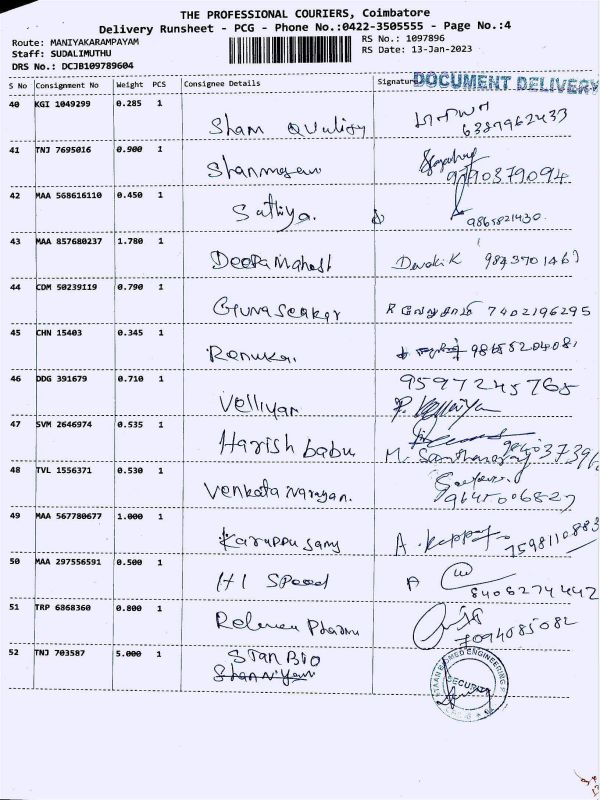 THE PROFESSIONAL COURIERS, Coimbatore
Delivery Runsheet - PCG - Phone No.:0422-3505555 - Page No.:4
Route: MANIYAKARAMPAYAM RS No.: 1097896
Staff: SUDALIMUTHU RS Date: 13-Jan-2023
DRS No.: DCJB109789604
S No Consignment No Weight PCS Consignee Details Signature DOCUMENT DELIVERY
40 KGI 1049299 0.285 1
Sham Quality 6389962433
41 TNJ 7695016 0.900 1
Shanmugam
42 MAA 568616110 0.450 1
Sathiya. 9865821430
43 MAA 857680237 1.780 1
Deepa Mahesh Devaki K
44 CDM 50239119 0.790 1
Gunaseakar 7402196295
45 CHN 15403 0.345 1
Renuka.
46 DDG 391679 0.710 1 9597245768
Velliyan
47 SVM 2646974 0.535 1
Harish babu
48 TVL 1556371 0.530 1
Venkata narayan.
49 MAA 567780677 1.000 1
Karuppu samy 7598110883
50 MAA 297556591 0.500 1
HI Speed 8406274442
51 TRP 6868360 0.800 1
Pharma 7094085082
52 TNJ 703587 5.000 1 Stan Bio
BIOMED ENGINEERING
SECURITY